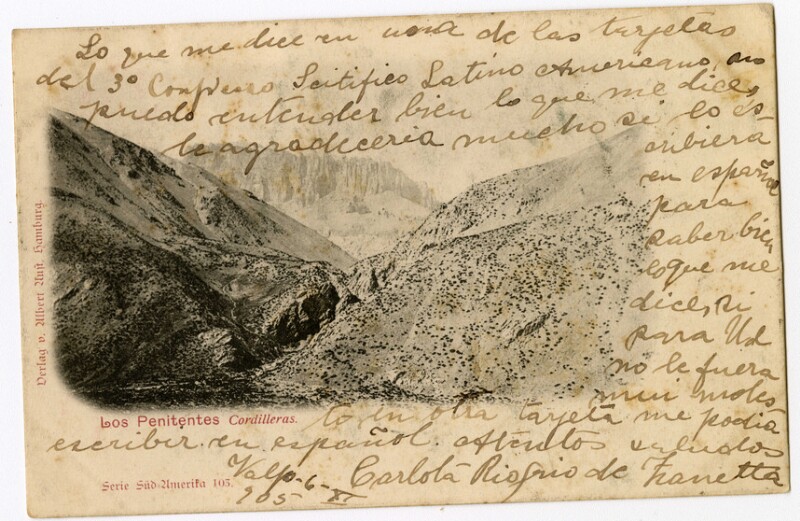 Lo que me dice en una de las tarjetas
del 3º Congreso Scitifico Latino Americano, no
puedo entender bien lo que me dice,
le agradeceria mucho si lo es
cribiera
en español
para
saber bien
lo que me
dice, si
para Ud
no le fuera
mui moles
to en otra tarjeta me podia
escribir en español. Atentos saludos
Valp. 6-XI
905
Carlota de
Los Penitentes Cordilleras.
Serie Süd-Amerika 103.
Verlag v. Albert Aust, Hamburg.